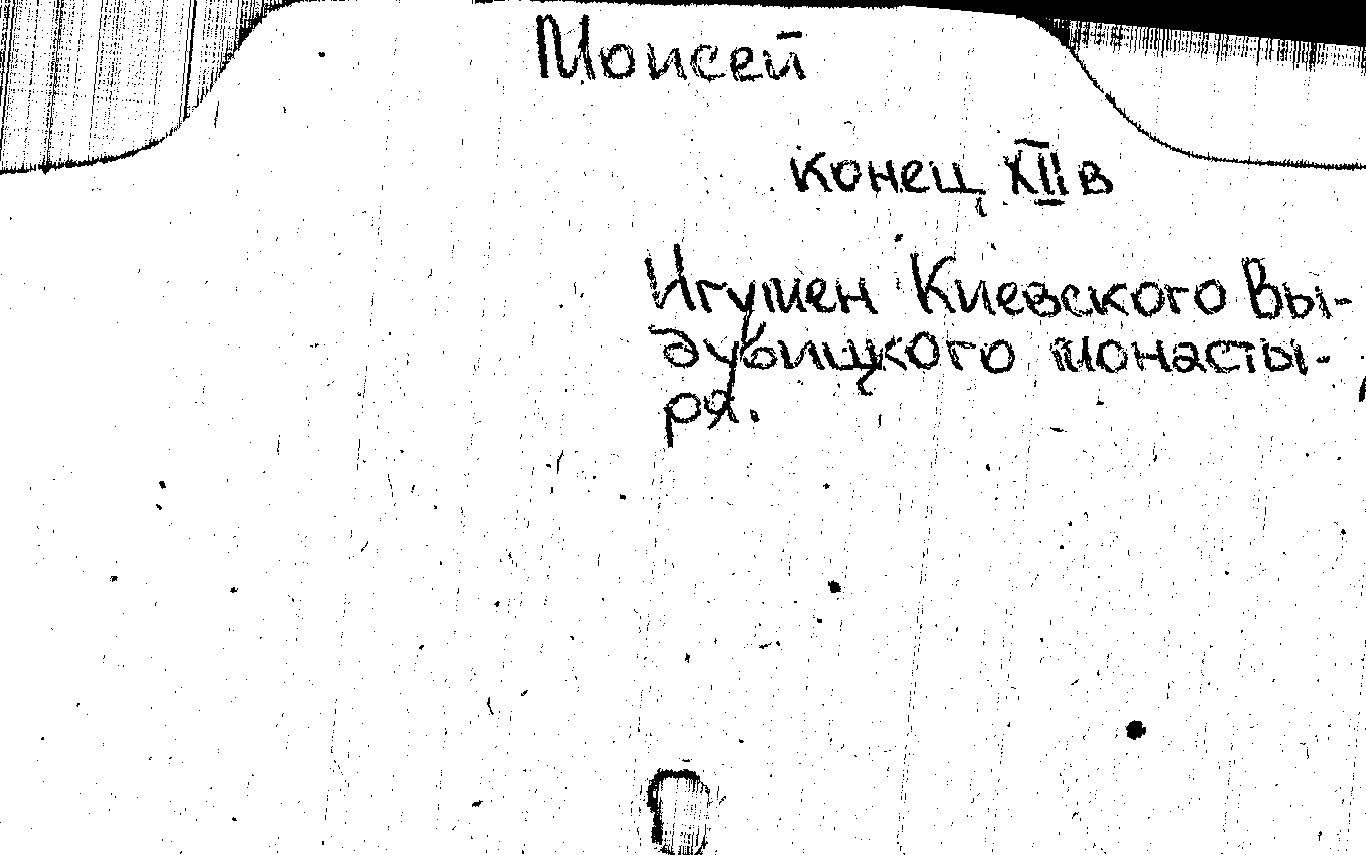 Моисей
конец XII в
Игумен Киевского Вы-
дубицкого монасты-
ря.